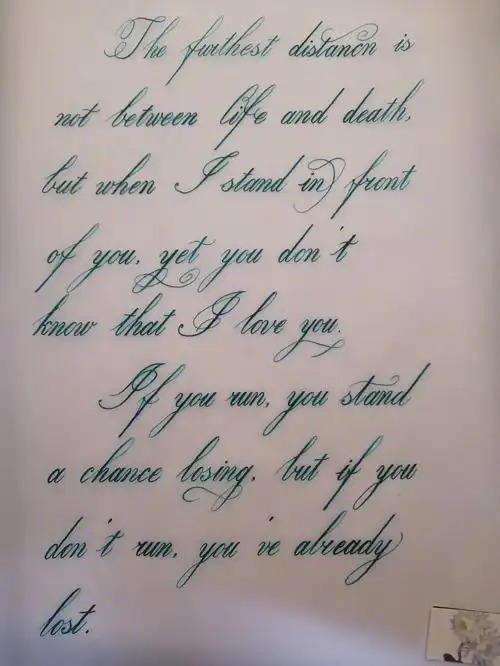 The furthest distancn is
not between life and death,
but when I stand in front
of you, yet you don't
know that I love you.
If you run, you stand
a chance losing, but if you
don't run, you've already
lost.